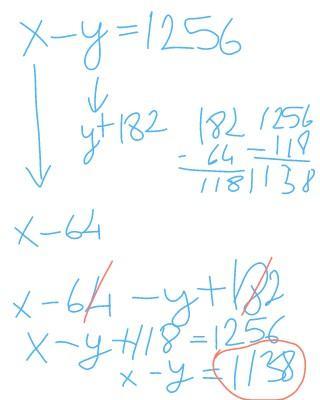 x-y=1256
y+182
182
- 64
118
1256
-118
1138
x-64
x-64 -y+182
x-y+118=1256
x-y=1138